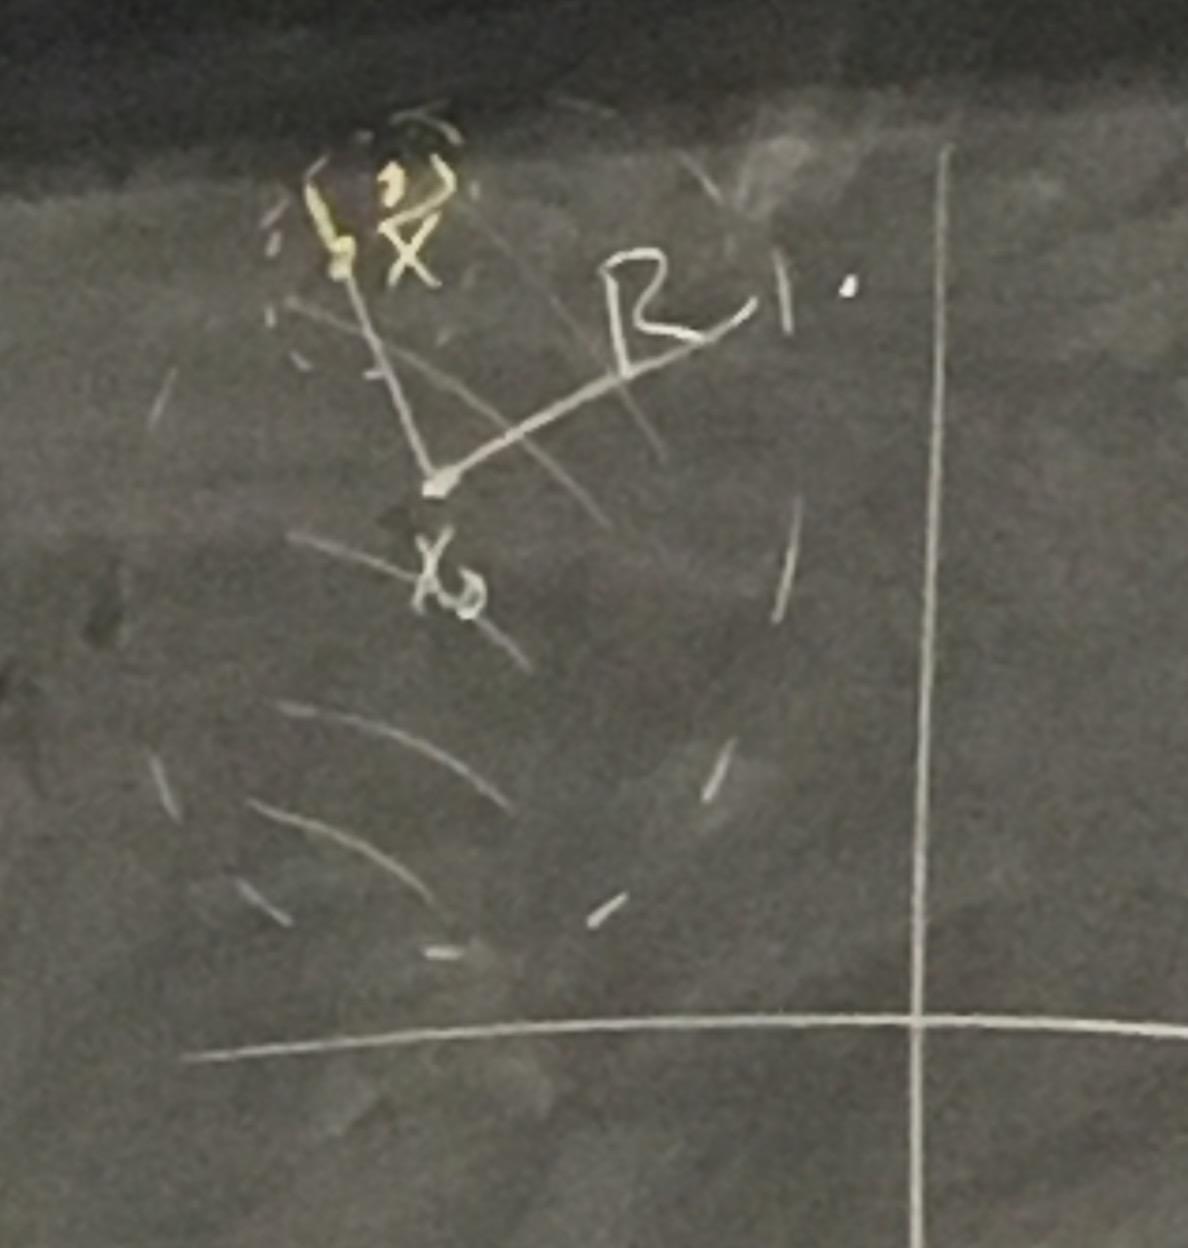 x
R
x₀